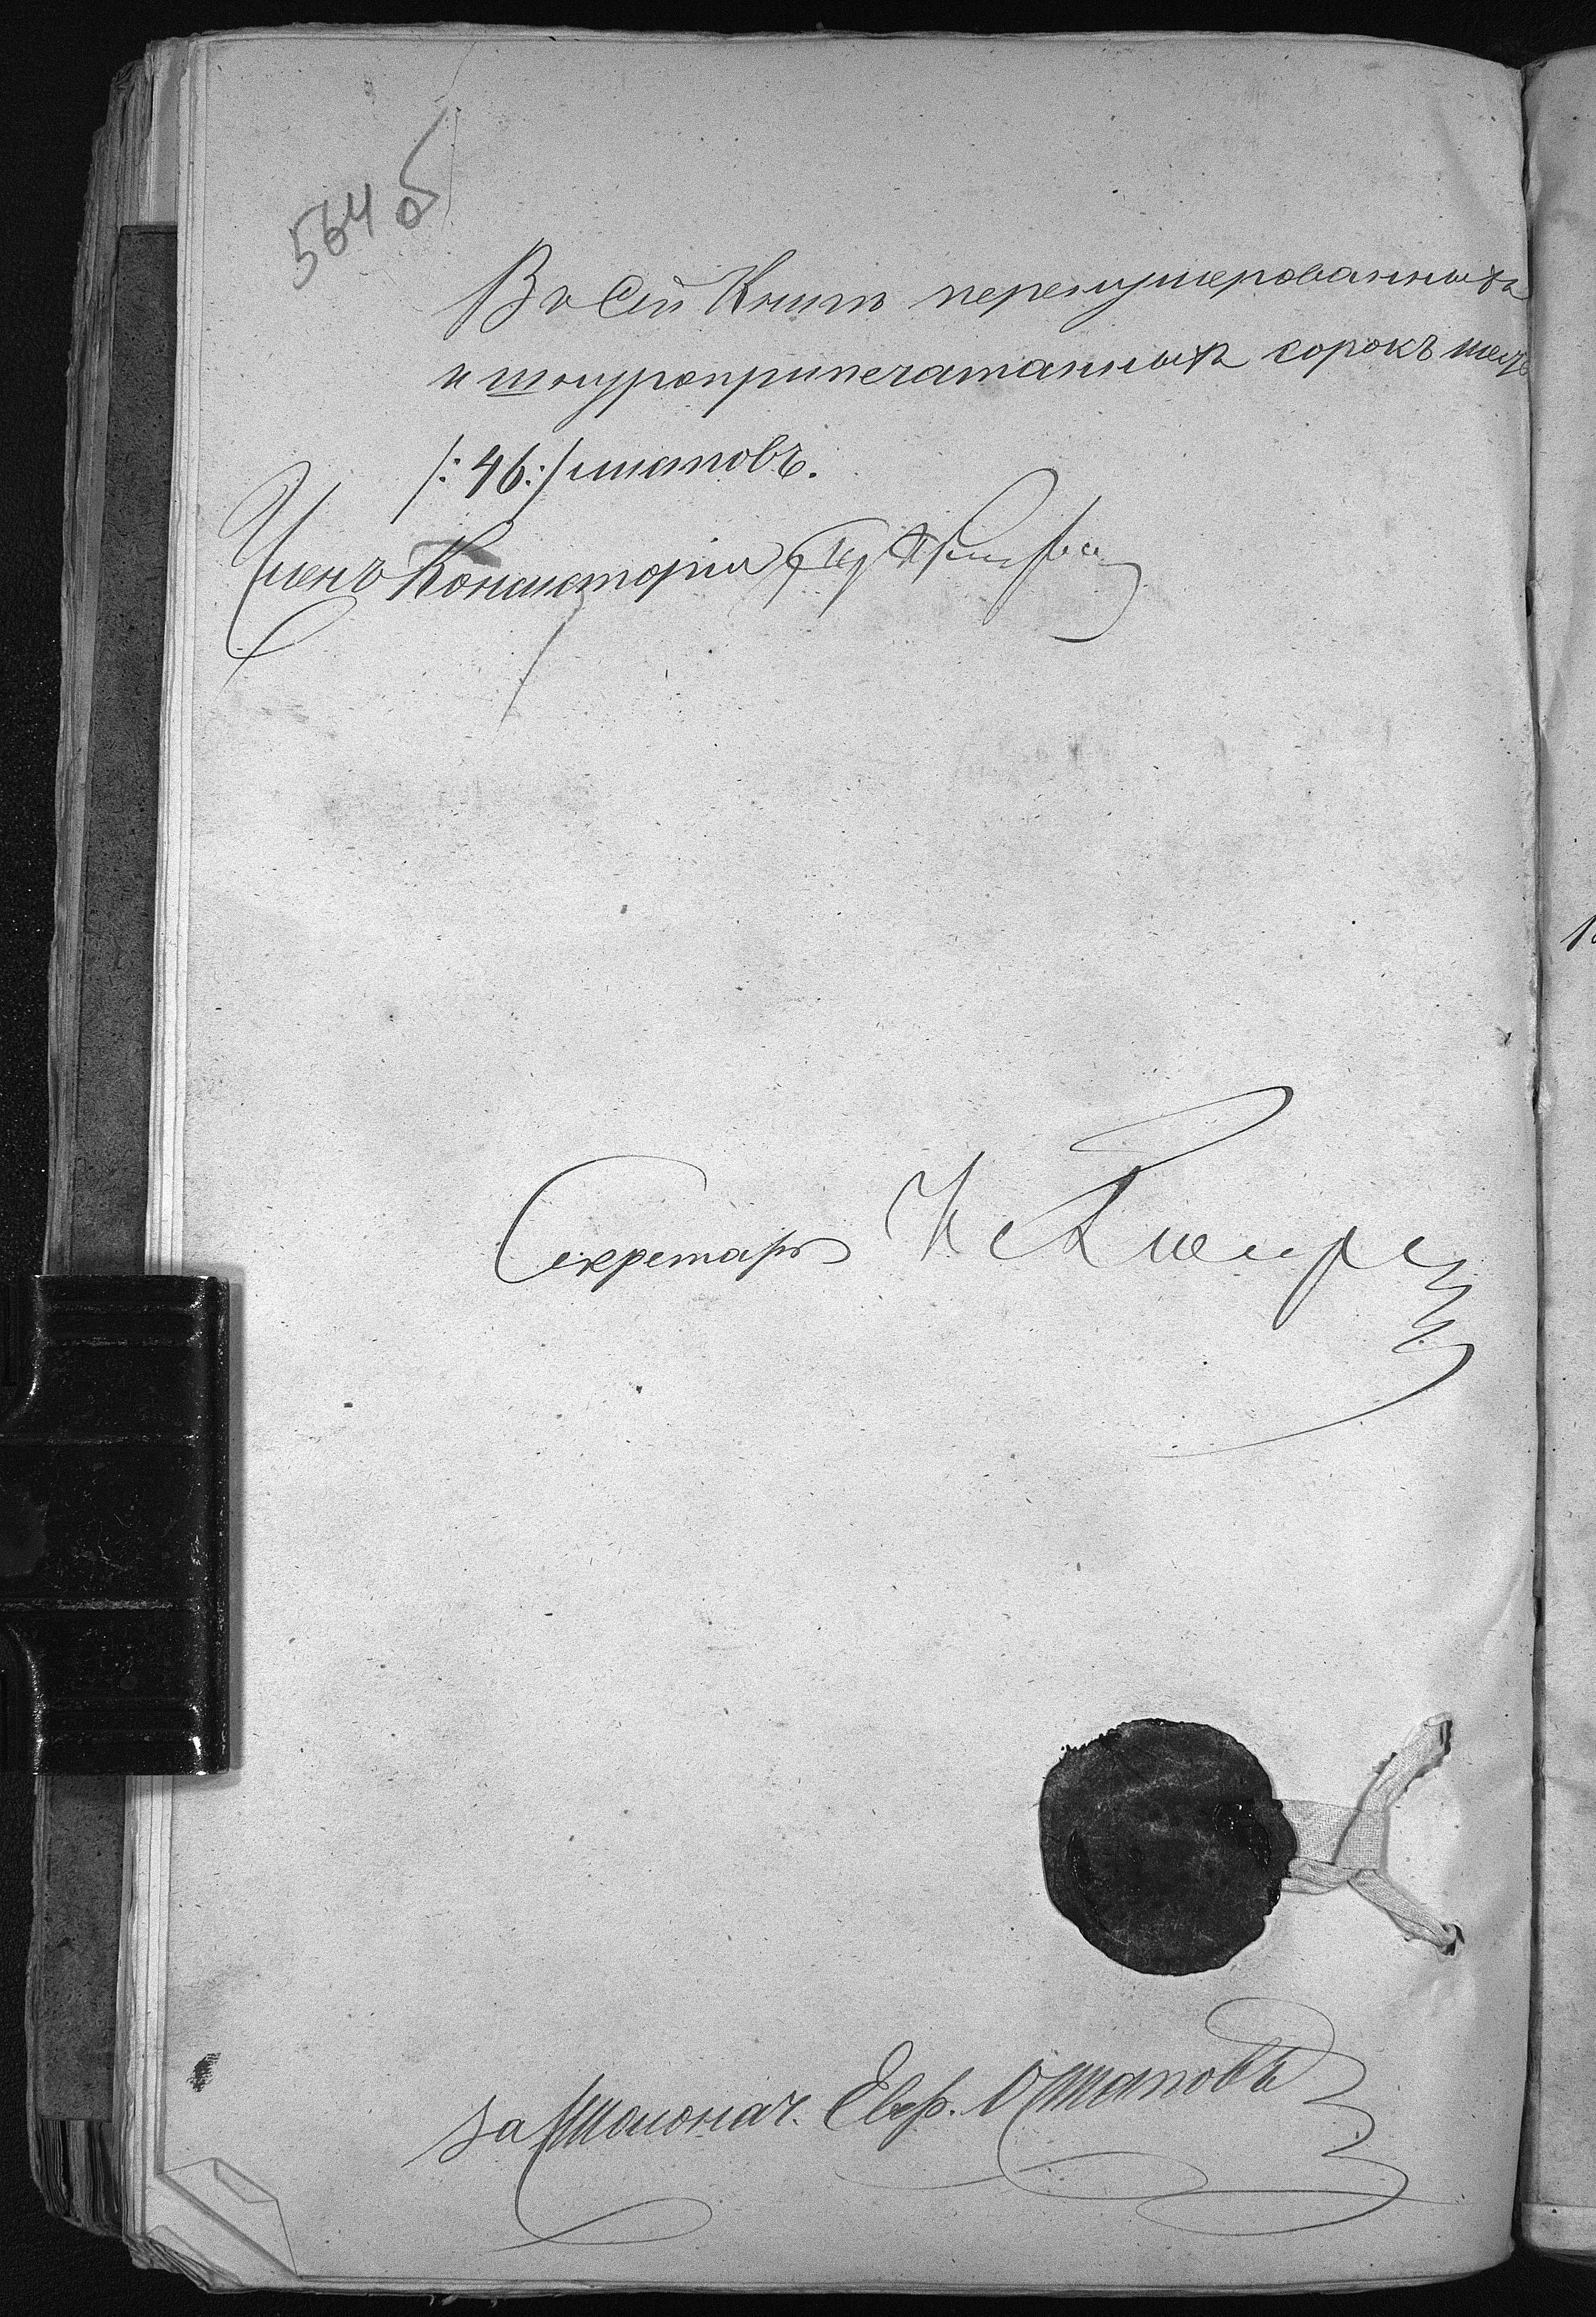 564 об
Въ Сей Книгѣ перенумерованныхъ
и шнуроприпечатанныхъ сорокъ шесть
/: 46 :/ листовъ.
Членъ Консисторіи
Секретарь
за Столонач. Евф. Остаповъ